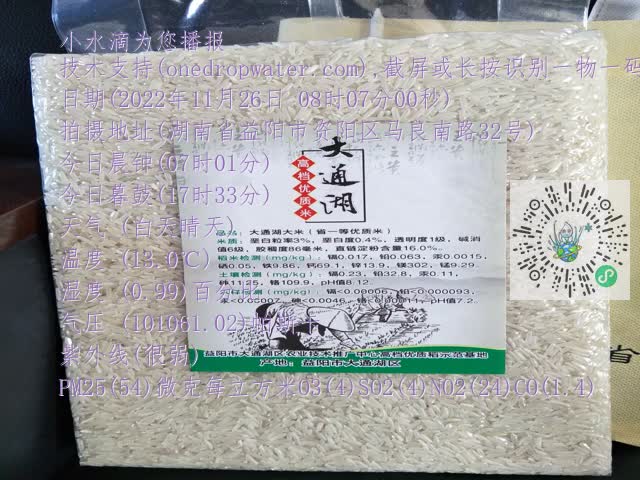 小水滴为您播报
技术支持(onedropwater.com),截屏或长按识别一物一码
日期(2022年11月26日 08时07分00秒)
拍摄地址(湖南省益阳市资阳区马良南路32号)
今日晨钟(07时01分)
今日暮鼓(17时33分)
天气 (白天晴天)
温度 (13.0℃)
湿度 (0.99)百分
气压 (101061.02)帕斯卡
紫外线(很弱)
PM25(54)微克每立方米O3(4)SO2(4)NO2(24)CO(1.4)
大通湖
高档优质米
品名: 大通湖大米(省一等优质米)
米质: 垩白粒率3%, 垩白度0.4%, 透明度1级, 碱消
值6级, 胶稠度86毫米, 直链淀粉含量16.0%。
稻米检测(mg/kg): 镉0.017, 铅0.063, 汞0.0015,
硒0.05, 铁9.86, 钙69.1, 锌13.9, 镁302, 锰9.29.
土壤检测(mg/kg): 镉0.23, 铅32.8, 汞0.11,
砷11.25, 铬109.9, pH值8.12.
镉<0.00006, 铅<0.000093,
汞<0.00007, 砷<0.0046, 铬<0.00011, pH值7.2.
益阳市大通湖区农业技术推广中心高档优质稻示范基地
产地: 益阳市大通湖区